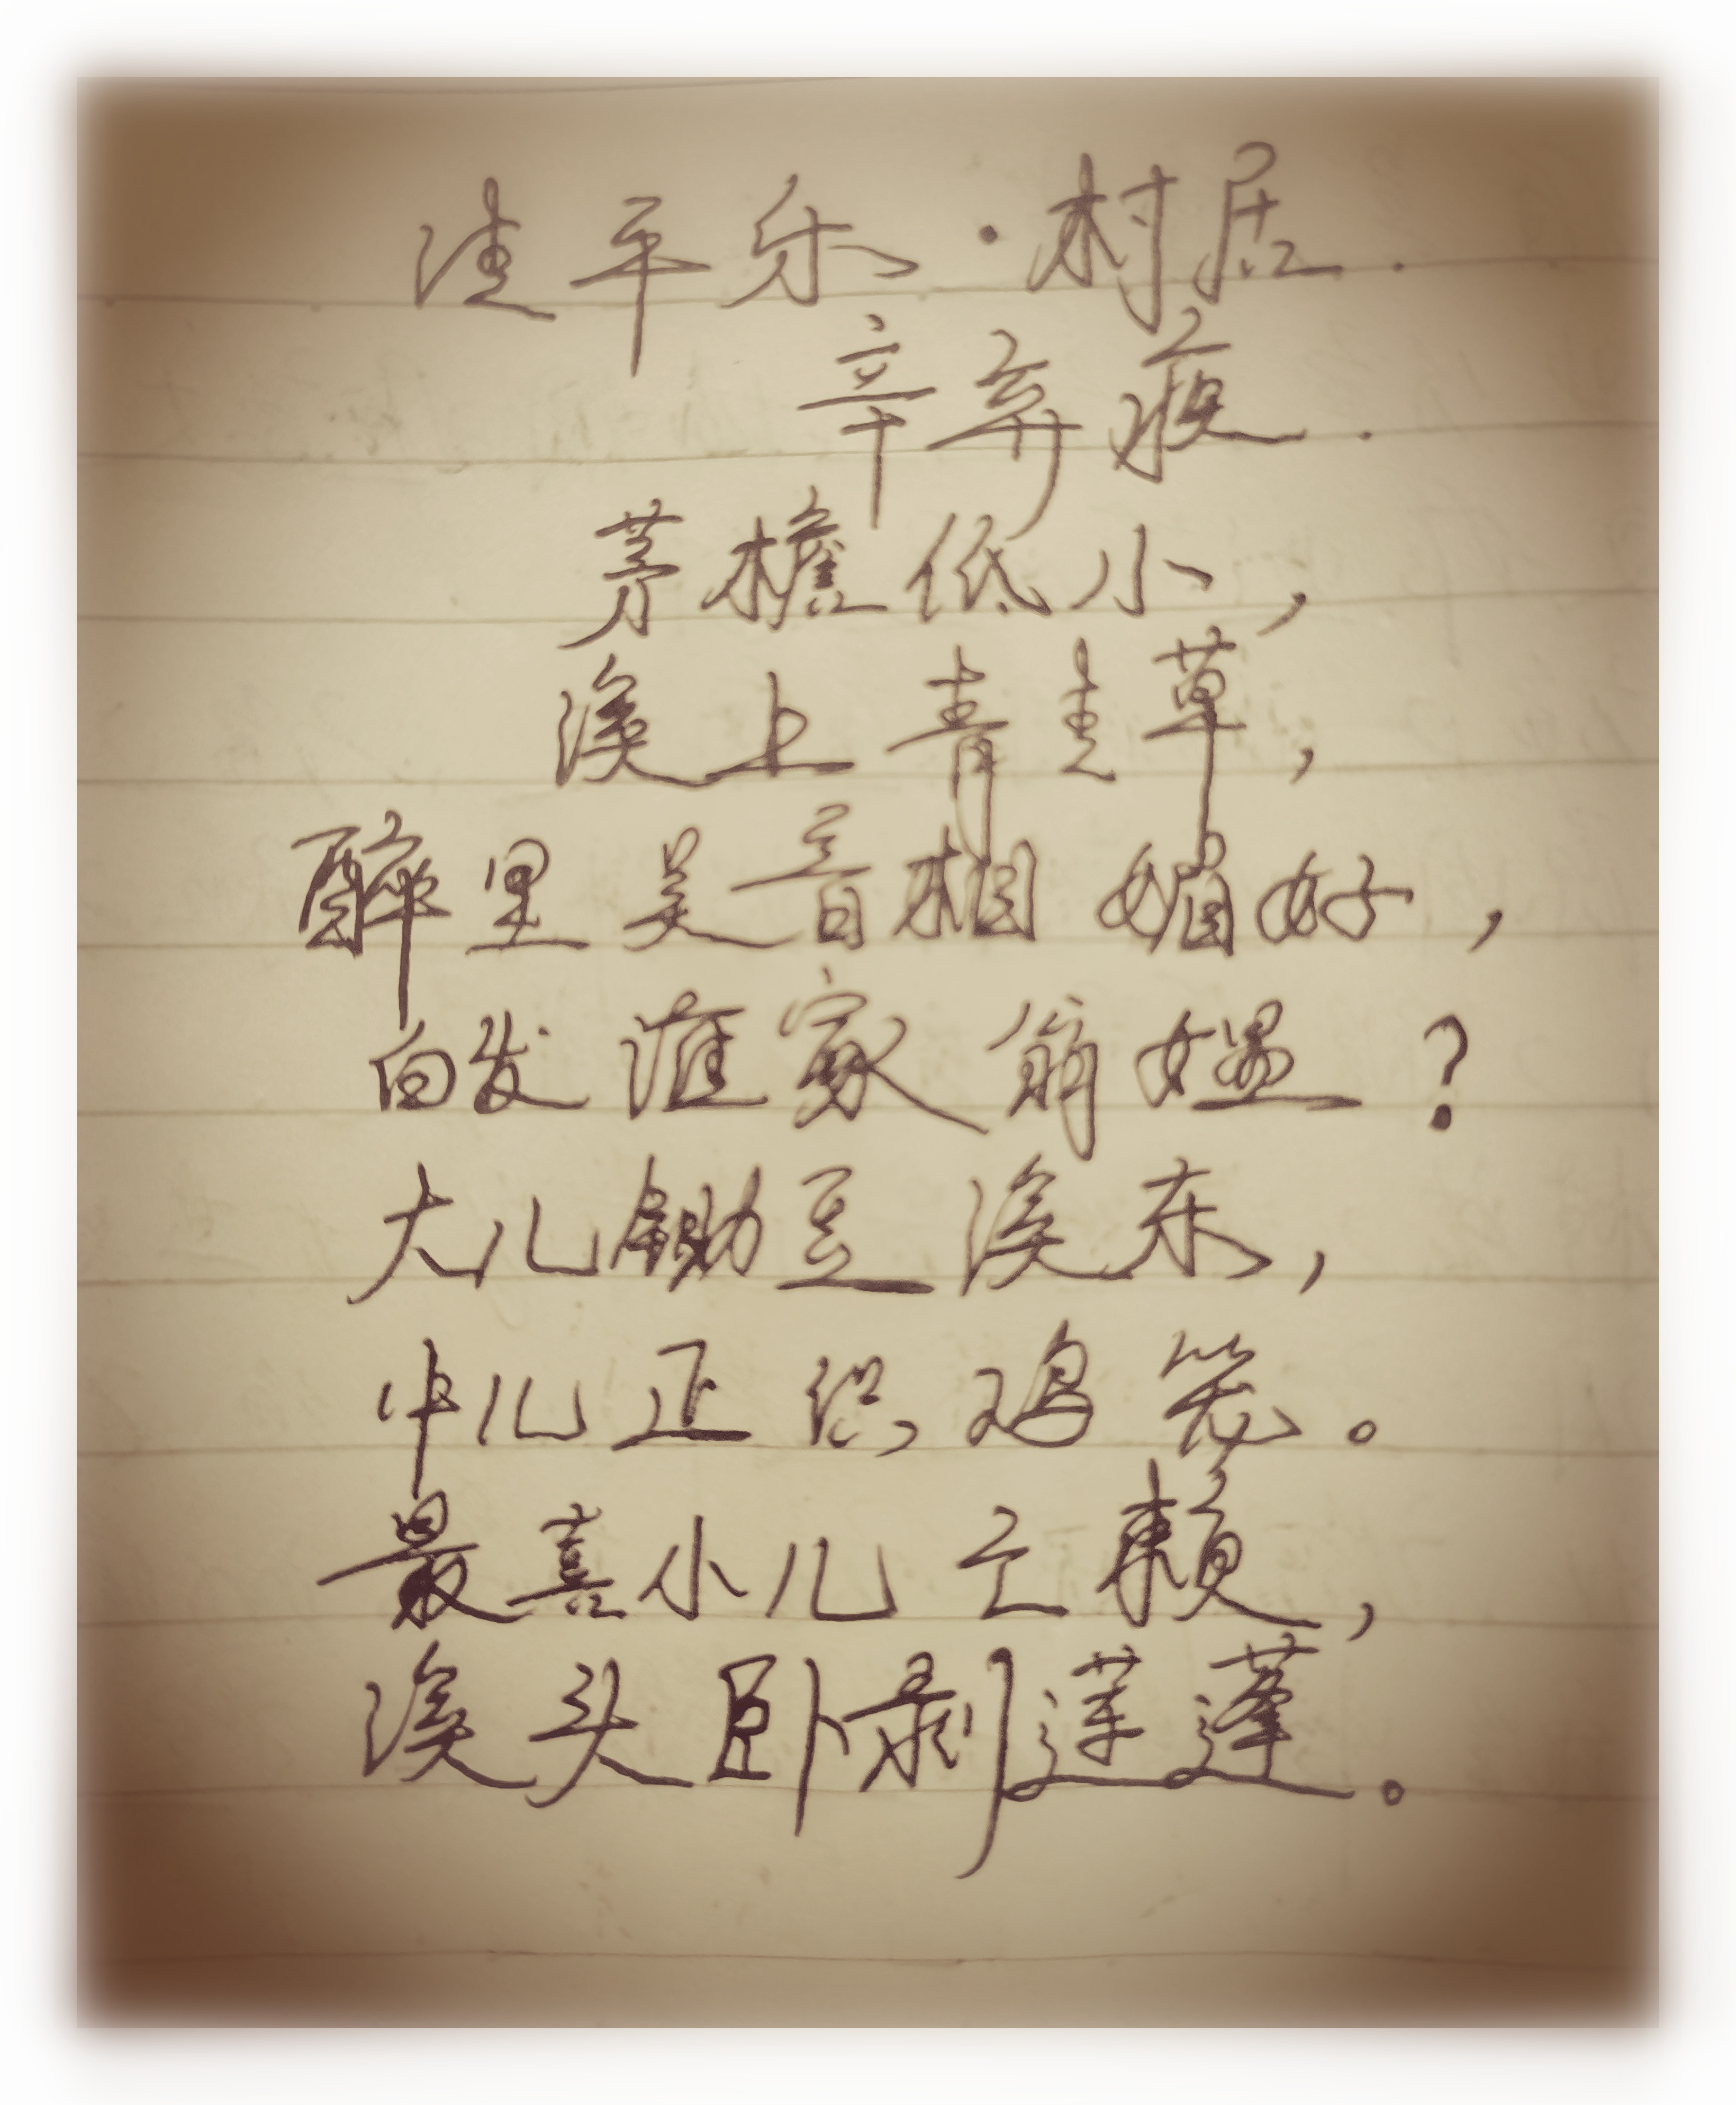 清平乐·村居.
辛弃疾.
茅檐低小,
溪上青青草,
醉里吴音相媚好,
白发谁家翁媪?
大儿锄豆溪东,
中儿正织鸡笼。
最喜小儿亡赖,
溪头卧剥莲蓬。